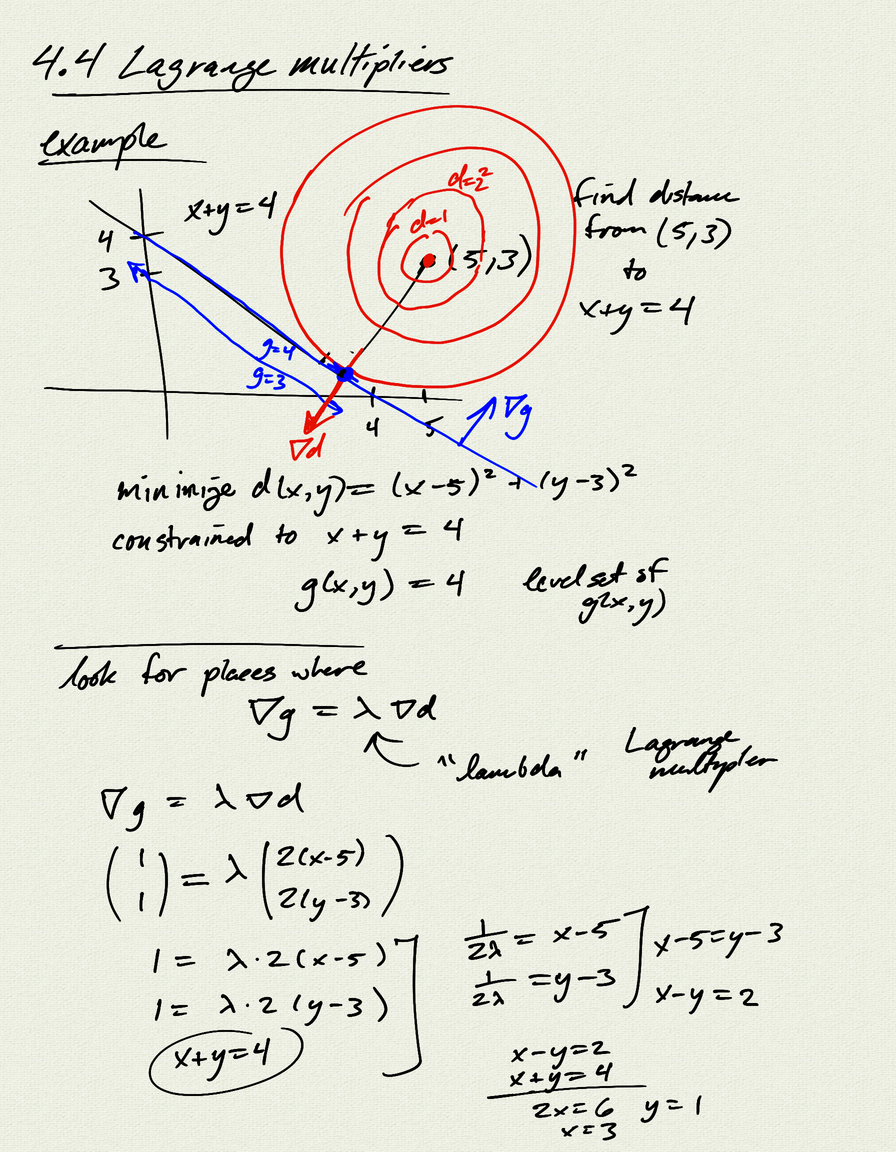 4.4 Lagrange multipliers
example
x+y=4
4
3
d=2²
d=1
(5,3)
find distance
from (5,3)
to
x+y=4
g=4
g=3
4
5
∇d
∇g
minimize d(x,y) = (x-5)² + (y-3)²
constrained to x+y = 4
g(x,y) = 4 level set of
g(x,y)
look for places where
∇g = λ∇d
"lambda" Lagrange
multiplier
∇g = λ∇d
(1 1) = λ (2(x-5) 2(y-3))
1 = λ·2(x-5)
1 = λ·2(y-3)
x+y=4
1/2λ = x-5
1/2λ = y-3
x-5=y-3
x-y=2
x-y=2
x+y=4
2x=6 y=1
x=3